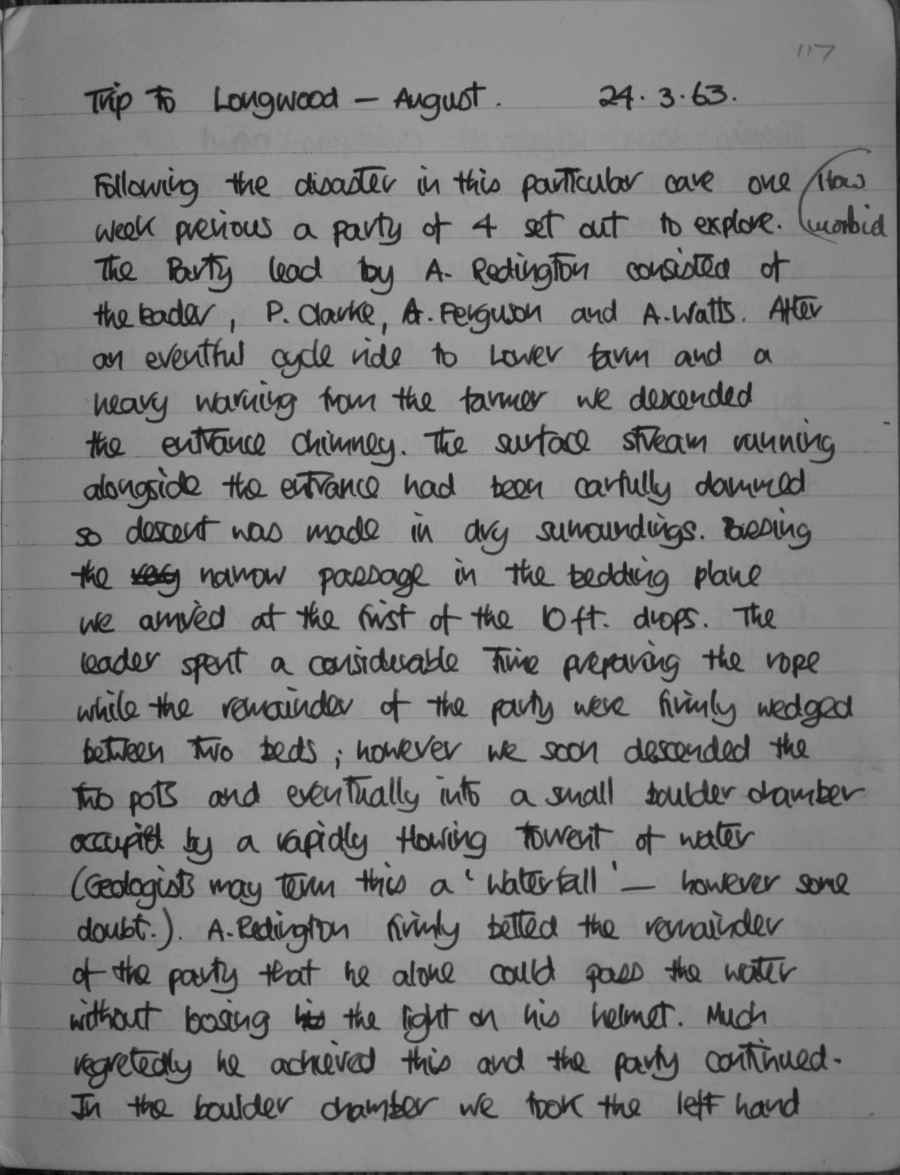 117
Trip To Longwood - August. 24.3.63.
Following the disaster in this particular cave one (How
week previous a party of 4 set out to explore. morbid
The Party lead by A. Redington consisted of
the leader, P. Clarke, A. Ferguson and A. Watts. After
an eventful cycle ride to Lower farm and a
heavy warning from the farmer we descended
the entrance chimney. The surface stream running
alongside the entrance had been carfully dammed
so descent was made in dry surroundings.
the very narrow passage in the bedding plane
we arrived at the first of the 10ft. drops. The
leader spent a considerable Time preparing the rope
while the remainder of the party were firmly wedged
between Two beds; however we soon descended the
two pots and eventually into a small boulder chamber
occupied by a rapidly flowing Torrent of water
(Geologists may Term this a 'Waterfall' - however some
doubt.). A. Redington firmly betted the remainder
of the party that he alone could pass the water
without loosing his the light on his helmet. Much
regretedly he achieved this and the party continued.
In the boulder chamber we took the left hand